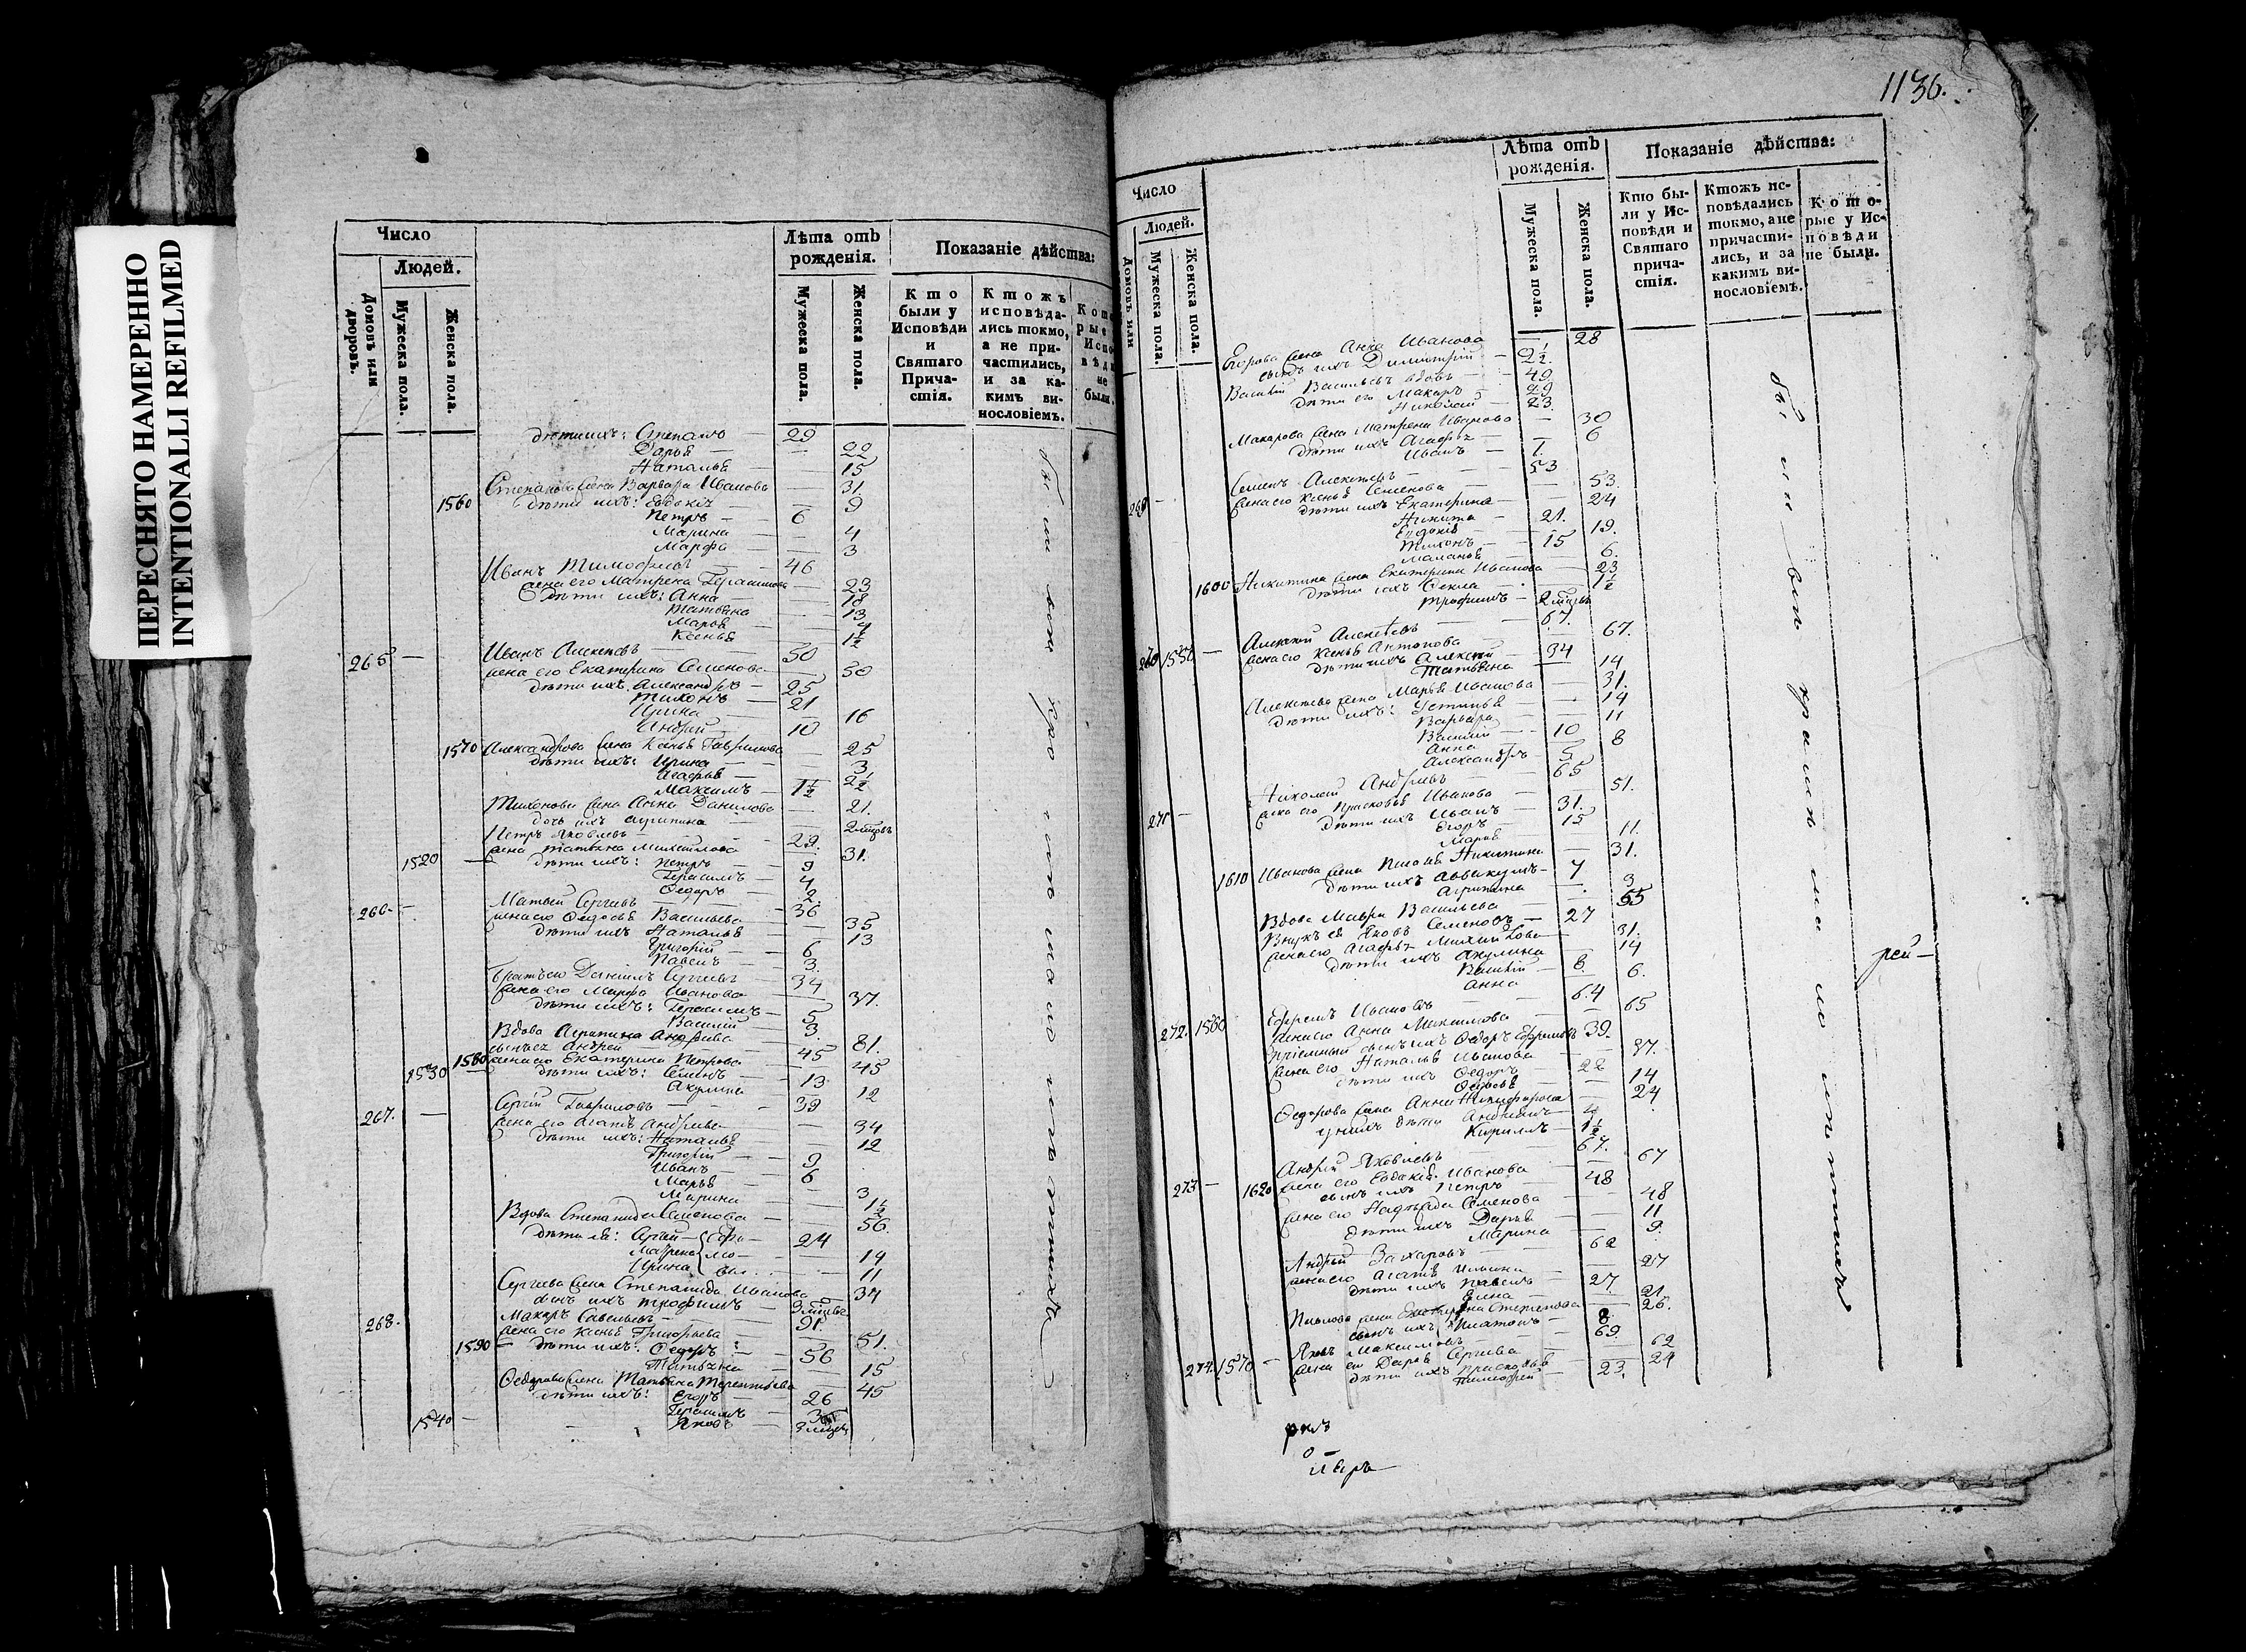 ПЕРЕСНЯТО НАМЕРЕННО
INTENTIONALLI REFILMED
Число
Людей.
Домовъ или дворовъ.
Мужеска пола.
Женска пола.
Лѣта отъ рожденія.
Мужеска пола.
Женска пола.
Показаніе дѣйства:
Кто были у Исповѣди и Святаго Прича-стія.
Ктожъ исповѣда-лись токмо, а не при-частились, и за ка-кимъ ви-нословіемъ.
дѣти ихъ: Степанъ 29
Дарья 22
Наталья 15
Степанова жена Варвара Иванова 31
1560 дѣти ихъ: Евдокія 9
Петръ 6
Марина 4
Марфа 3
Иванъ Тимофеевъ 46
жена его Матрена Герасимова 23
дѣти ихъ: Анна 18
Татьяна 13
Марья
Ксенья 1½
265 Иванъ Алексѣевъ 50
жена его Екатерина Семенова 50
дѣти ихъ Александръ 25
Тихонъ 21
Ирина 16
Андрей 10
1570 Александрова жена Ксенья Гаврилова 25
дѣти ихъ: Ирина 3
Агафья 2½
Максимъ 1½
Тихонова жена Анна Данилова 21.
дочь ихъ Агрипина
Петръ Яковлевъ 29.
жена Татьяна Михайлова 31.
1520 дѣти ихъ: Петръ 9
Герасимъ 4
Ѳедоръ 2
266 Матвей Сергеевъ 36
жена его Ѳедосья Васильева 35
дѣти ихъ Наталья 13
Григорій 6
Павелъ 3.
братъ его Даніилъ Сергеевъ 34
жена его Марфа Иванова 37.
дѣти ихъ: Герасимъ 5
Василій 3.
Вдова Агрипина Андреева 81.
сынъ ея Андрей 45
1580 жена его Екатерина Петрова 45
1530 дѣти ихъ: Семенъ 13
Акулина 12
267. Сергій Гавриловъ 39
жена его Агафья Андреева 34
дѣти ихъ: Наталья 12
Григорій 9
Иванъ 6
Марья 3
Марина 1½
Вдова Степанида Семенова 56.
дѣти ея: Сергей 24
Матрена 14
Ирина 11
Сергеева жена Степанида Иванова 34
сынъ ихъ Трофимъ
268. Макаръ Савельевъ 91.
жена его Ксенья Григорьева 51.
1590 дѣти ихъ: Ѳедоръ 56
Татьяна 15
Ѳедорова жена Татьяна Терентьева 45
дѣти ихъ: Егоръ 26
Герасимъ
1540 Яковъ
1136.
Число
Людей.
Домовъ или
Мужеска пола.
Женска пола.
Лѣта отъ рожденія.
Мужеска пола.
Женска пола.
Показаніе дѣйства:
Кто бы-ли у Ис-повѣди и Святаго прича-стія.
Ктожъ ис-повѣдались токмо, а не причасти-лись, и за какимъ ви-нословіемъ.
Кото-рые у Ис-повѣди не были.
Егорова жена Анна Иванова 28
сынъ ихъ Димитрій 2½.
Василій Васильевъ вдовъ 49
дѣти его Макаръ 29
Николай 23.
Макарова жена Матрена Иванова 30
дѣти ихъ Агафья 6
Иванъ 1.
269 Семенъ Алексѣевъ 53
жена его Ксенья Семенова 53.
дѣти ихъ Екатерина 24
Никита 21.
Евдокія 19.
Тихонъ 15
Маланья 6.
1600 Никитина жена Екатерина Иванова 23
дѣти ихъ Ѳекла 1½
Трофимъ
270 1550 Алексей Алексѣевъ 67.
жена его Ксенья Антонова 67.
дѣти ихъ Алексей 34
Татьяна 14
Алексѣева жена Марья Иванова 31.
дѣти ихъ: Устинья 14
Варвара 11
Василій 10
Анна 8
Александръ 5
271 Николай Андреевъ 65
жена его Прасковья Иванова 51.
дѣти ихъ Иванъ 31.
Егоръ 15
Марья 11.
1610 Иванова жена Никитина 31.
дѣти ихъ Аввакумъ 7
Агрипина 3
Вдова Мавра Васильева 65
Внукъ ея Яковъ Семеновъ 27
жена его Агафья Михайлова 31.
дѣти ихъ Акулина 14
Василій 8.
Анна 6.
272. 1560 Ефремъ Ивановъ 64
жена его Анна Максимова 65
Пріемный сынъ ихъ Ѳедоръ Ефремовъ 39.
жена его Наталья Иванова 37.
дѣти ихъ Ѳедоръ 22
Ѳедосья 14
Ѳедорова жена Анна Никифорова 24
у нихъ дѣти Андреянъ 4
Кирилъ 1½
273 Андрей Яковлевъ 67.
1620 жена его Евдокія Иванова 67
сынъ ихъ Петръ 48
жена его Надежда Семенова 48
дѣти ихъ Дарья 11
Марина 9.
Андрей Захаровъ 62
жена его Агафья Ильина 27
дѣти ихъ Павелъ 27.
Елена 21.
Павлова жена Екатерина Степанова 26.
сынъ ихъ Платонъ 8.
274. 1570 Яковъ Максимовъ 69.
жена его Дарья Сергеева 62
дѣти ихъ Прасковья 24
Тимофей 23.